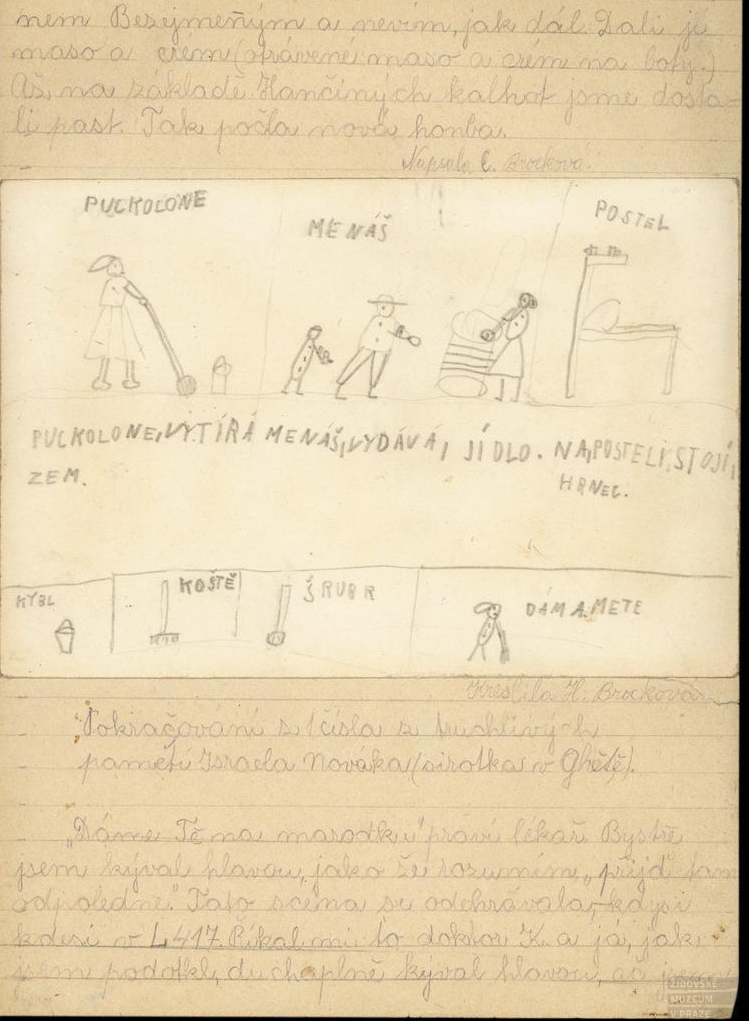 nem Bezejmeným a nevím, jak dál. Dali jí
maso a crém (správené maso a crém na boty.)
Až na základě Hančiných kalhot jsme dosta-
li past. Tak počla nová honba.
Napsala E. Brocková.
PUCKOLONE
MENÁŠ
POSTEL
PUCKOLONE, VYTÍRÁ MENÁŠ, VYDÁVÁ, JÍDLO. NA, POSTELI, STOJÍ,
ZEM.
HRNEC.
KÝBL
KOŠTĚ
ŠRUBR
DÁMA METE
Kreslila H. Brocková
Pokračování z 1 čísla z truchlivých
pamětí Israela Nováka (sirotka v Ghětě).
„Dáme Tě na marodku" praví lékař. Bystře
jsem kýval hlavou, jako že rozumím, „přijď tam
odpoledne." Tato scéna se odehrávala, kdysi
kdesi v L 417. Říkal mi to doktor K. a já, jak
jsem podotkl, duchaplně kýval hlavou, ač
ŽIDOVSKÉ
MUZEUM
V PRAZE